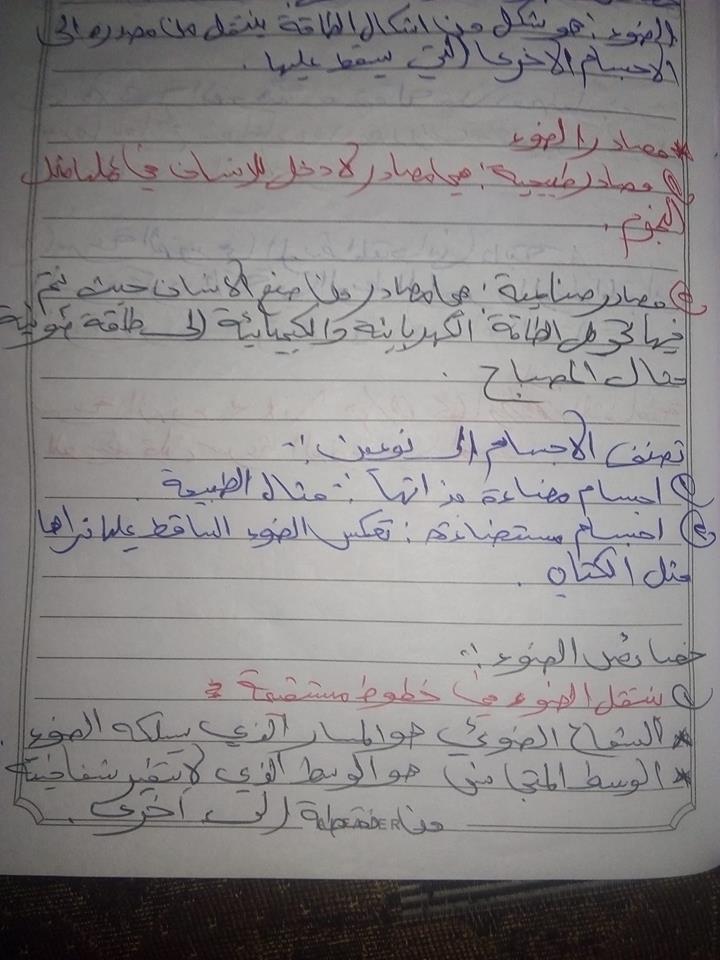 الضوء : هو شكل من اشكال الطاقة ينتقل من مصدره الى
الاجسام الاخرى التي يسقط عليها .
* مصادر الضوء
١) مصادر طبيعية : هي مصادر لا دخل للإنسان في عملها مثل
النجوم .
٢) مصادر صناعية : هي مصادر من صنع الانسان حيث يتم
فيها تحويل الطاقة الكهربائية والكيميائية إلى طاقة ضوئية
مثال المصباح .
تصنف الأجسام إلى نوعين :-
١) اجسام مضاءة مذاتها :- مثال الطبيعة .
٢) اجسام مستضاءة : تعكس الضوء الساقط عليها نراها
مثل الكتاب .
خصائص الضوء :-
١) ينتقل الضوء في خطوط مستقيمة :
* الشعاع الضوئي هو المسار الذي يسلكه الضوء
* الوسط المتجانس هو الوسط الذي لا تتغير شفافيته
من نقطة إلى أخرى .